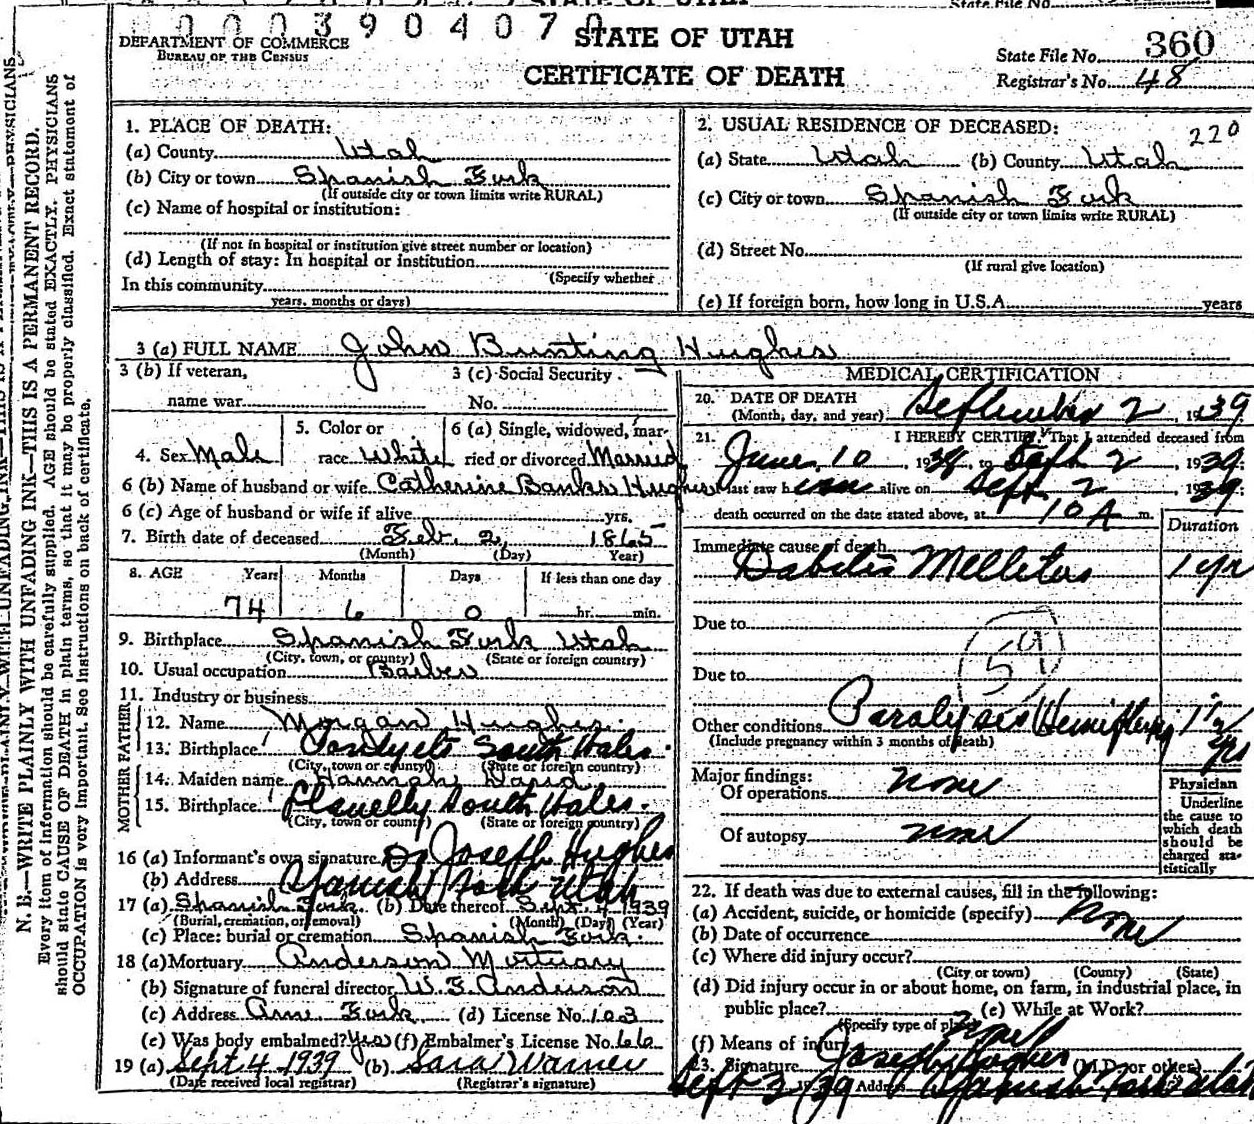 STATE OF UTAH
State File No.
0003904070
DEPARTMENT OF COMMERCE
BUREAU OF THE CENSUS
STATE OF UTAH
CERTIFICATE OF DEATH
State File No. 360
Registrar's No. 48
N. B.—WRITE PLAINLY WITH UNFADING INK—THIS IS A PERMANENT RECORD.
Every item of information should be carefully supplied. AGE should be stated EXACTLY. PHYSICIANS
should state CAUSE OF DEATH in plain terms, so that it may be properly classified. Exact statement of
OCCUPATION is very important. See instructions on back of certificate.
1. PLACE OF DEATH:
(a) County Utah
(b) City or town Spanish Fork
(If outside city or town limits write RURAL)
(c) Name of hospital or institution:
(If not in hospital or institution give street number or location)
(d) Length of stay: In hospital or institution
(Specify whether
In this community
years, months or days)
2. USUAL RESIDENCE OF DECEASED:
220
(a) State Utah (b) County Utah
(c) City or town Spanish Fork
(If outside city or town limits write RURAL)
(d) Street No.
(If rural give location)
(e) If foreign born, how long in U.S.A. years
3 (a) FULL NAME John Bunting Hughes
3 (b) If veteran,
name war
3 (c) Social Security
No.
4. Sex Male
5. Color or
race White
6 (a) Single, widowed, mar-
ried or divorced Married
6 (b) Name of husband or wife Catherine Banks Hughes
6 (c) Age of husband or wife if alive yrs.
7. Birth date of deceased Feb. 2, 1865
(Month) (Day) Year)
8. AGE Years Months Days If less than one day
74 6 0 hr. min.
9. Birthplace Spanish Fork Utah
(City, town, or county) (State or foreign country)
10. Usual occupation Barber
11. Industry or business
FATHER
12. Name Morgan Hughes
13. Birthplace South Wales.
(City, town or county) (State or foreign country)
MOTHER
14. Maiden name Hannah David
15. Birthplace Llanelly South Wales.
(City, town or county) (State or foreign country)
16 (a) Informant's own signature Dr Joseph Hughes
(b) Address Spanish Fork Utah
17 (a) Spanish Fork. (b) Date thereof Sept. 4 1939
(Burial, cremation, or removal) (Month) (Day) (Year)
(c) Place: burial or cremation Spanish Fork.
18 (a) Mortuary Anderson Mortuary
(b) Signature of funeral director W. F. Anderson
(c) Address Am. Fork (d) License No. 103
(e) Was body embalmed? Yes (f) Embalmer's License No. 66
19 (a) Sept 4 1939 (b) Sara Warner
(Date received local registrar) (Registrar's signature)
MEDICAL CERTIFICATION
20. DATE OF DEATH
(Month, day, and year) September 2, 1939
21. I HEREBY CERTIFY, That I attended deceased from
June 10, 1938, to Sept 2, 1939;
I last saw him alive on Sept. 2 1939;
death occurred on the date stated above, at 10 A m.
Duration
Immediate cause of death
Dabetis Mellitus 1 yr
Due to
59
Due to
Other conditions Paralysis Hemiplegia 1 1/2 yrs
(Include pregnancy within 3 months of death)
Major findings:
Of operations none
Of autopsy none
Physician
Underline
the cause to
which death
should be
charged sta-
tistically
22. If death was due to external causes, fill in the following:
(a) Accident, suicide, or homicide (specify) None
(b) Date of occurrence
(c) Where did injury occur?
(City or town) (County) (State)
(d) Did injury occur in or about home, on farm, in industrial place, in
public place? (e) While at Work?
(Specify type of place)
(f) Means of injury none
23. Signature Joseph Hughes (M.D. or other)
Sept 3 1939 Address Spanish Fork Utah